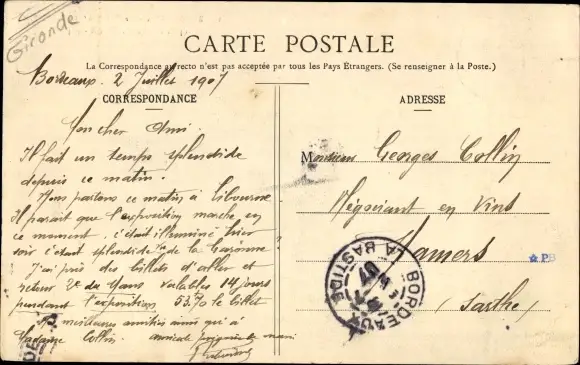 Gironde
CARTE POSTALE
La Correspondance au recto n'est pas acceptée par tous les Pays Étrangers. (Se renseigner à la Poste.)
Bordeaux 2 Juillet 1907
CORRESPONDANCE
Mon cher Ami.
Il fait un temps splendide
depuis ce matin.
Nous partons ce matin à Libourne
Il parait que l'exposition marche en
ce moment. c'était illuminé hier
soir c'était splendide de la Garonne
J'ai pris des billets d'aller et
retour valables 14 jours
pendant l'exposition 53.70 le billet
meilleures amitiés ainsi qu'à
Madame Collin. amicale poignée de main
ADRESSE
Monsieur Georges Collin
Négociant en Vins
Mamers
(Sarthe)
BORDEAUX
LA BASTIDE
07
PB